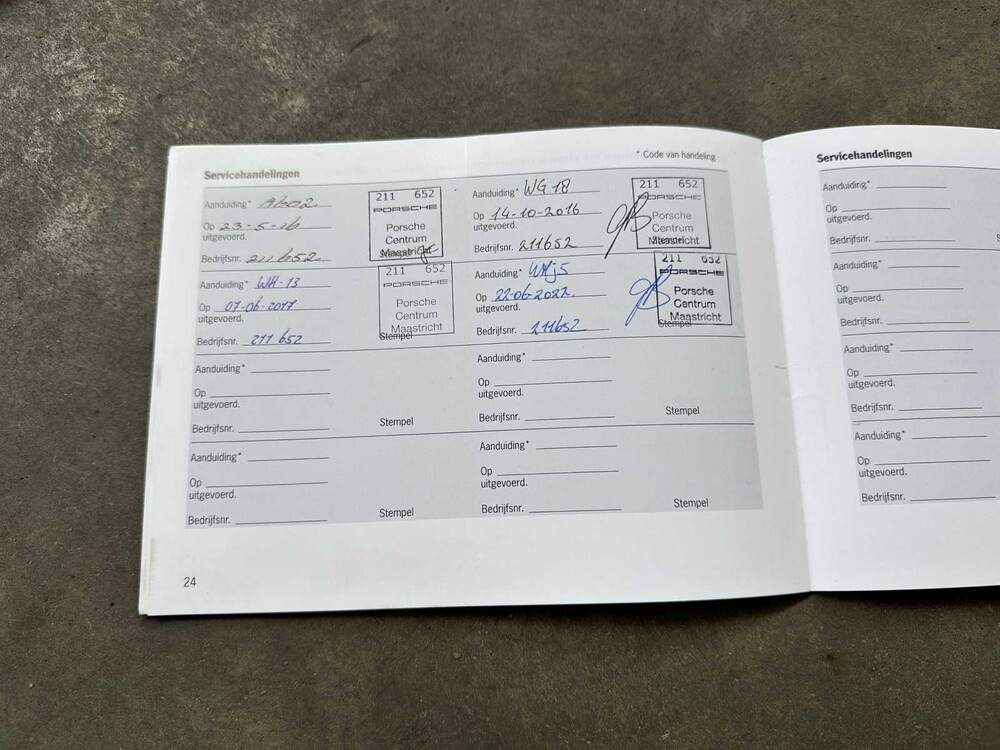 * Code van handeling
Servicehandelingen
Aanduiding*
Op 23-5-16
uitgevoerd.
Bedrijfsnr. 211652
211 652
PORSCHE
Porsche
Centrum
Maastricht
Stempel
Aanduiding* WG 18
Op 14-10-2016
uitgevoerd.
Bedrijfsnr. 211652
211 652
PORSCHE
Porsche
Centrum
Maastricht
Stempel
Aanduiding* WH-13
Op 07-06-2017
uitgevoerd.
Bedrijfsnr. 211652
211 652
PORSCHE
Porsche
Centrum
Maastricht
Stempel
Aanduiding* WHj5
Op 22-06-2022
uitgevoerd.
Bedrijfsnr. 211652
211 652
PORSCHE
Porsche
Centrum
Maastricht
Stempel
Aanduiding*
Op
uitgevoerd.
Bedrijfsnr.
Stempel
Aanduiding*
Op
uitgevoerd.
Bedrijfsnr.
Stempel
Aanduiding*
Op
uitgevoerd.
Bedrijfsnr.
Stempel
Aanduiding*
Op
uitgevoerd.
Bedrijfsnr.
Stempel
24
Servicehandelingen
Aanduiding*
Op
uitgevoerd.
Bedrijfsnr.
Aanduiding*
Op
uitgevoerd.
Bedrijfsnr.
Aanduiding*
Op
uitgevoerd.
Bedrijfsnr.
Aanduiding*
Op
uitgevoerd.
Bedrijfsnr.